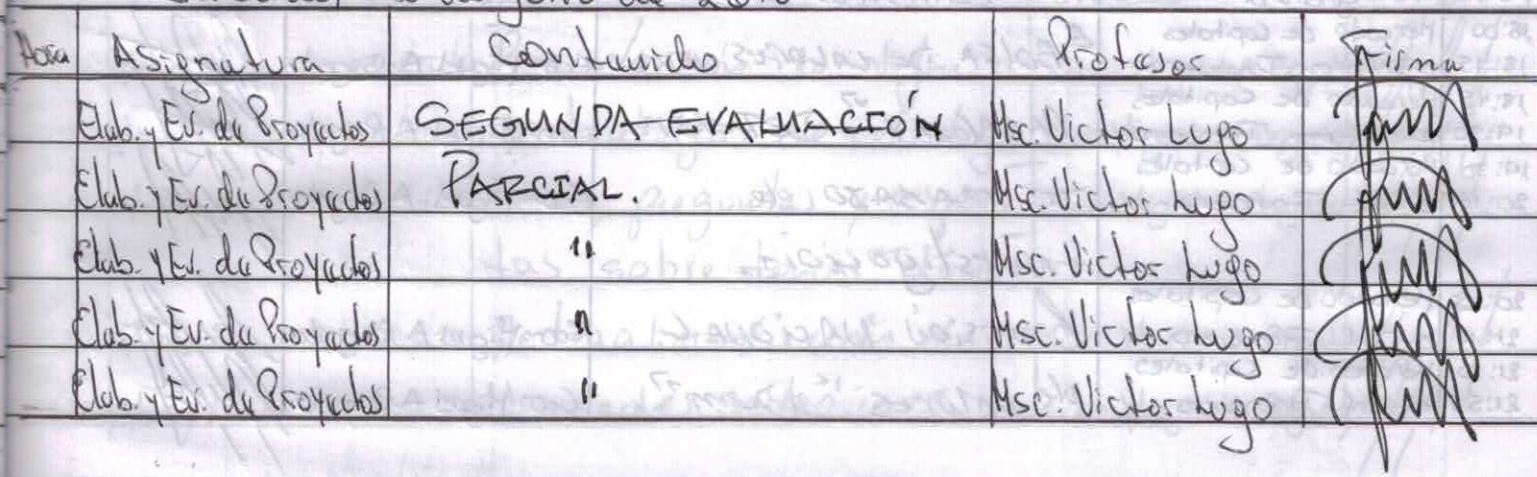 Hora Asignatura Contenido Profesor Firma
Elab. y Ev. de Proyectos SEGUNDA EVALUACIÓN Msc. Victor Lugo
Elab. y Ev. de Proyectos PARCIAL. Msc. Victor Lugo
Elab. y Ev. de Proyectos " Msc. Victor Lugo
Elab. y Ev. de Proyectos " Msc. Victor Lugo
Elab. y Ev. de Proyectos " Msc. Victor Lugo